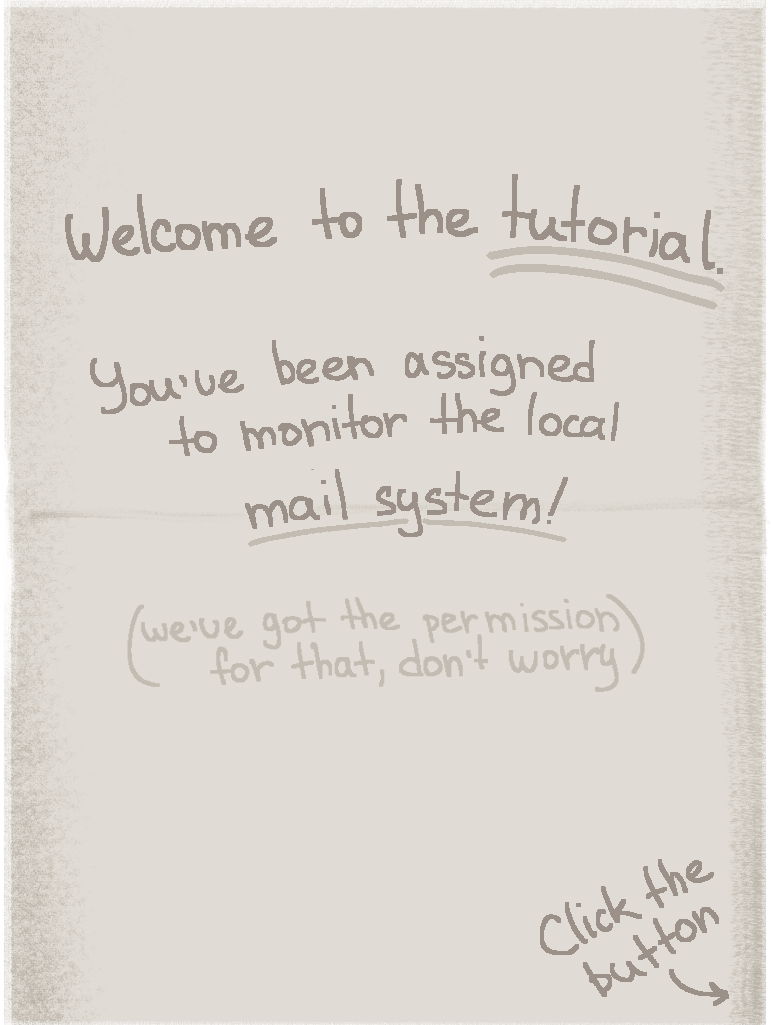 Welcome to the tutorial.
You've been assigned
to monitor the local
mail system!
(we've got the permission
for that, don't worry)
Click the
button